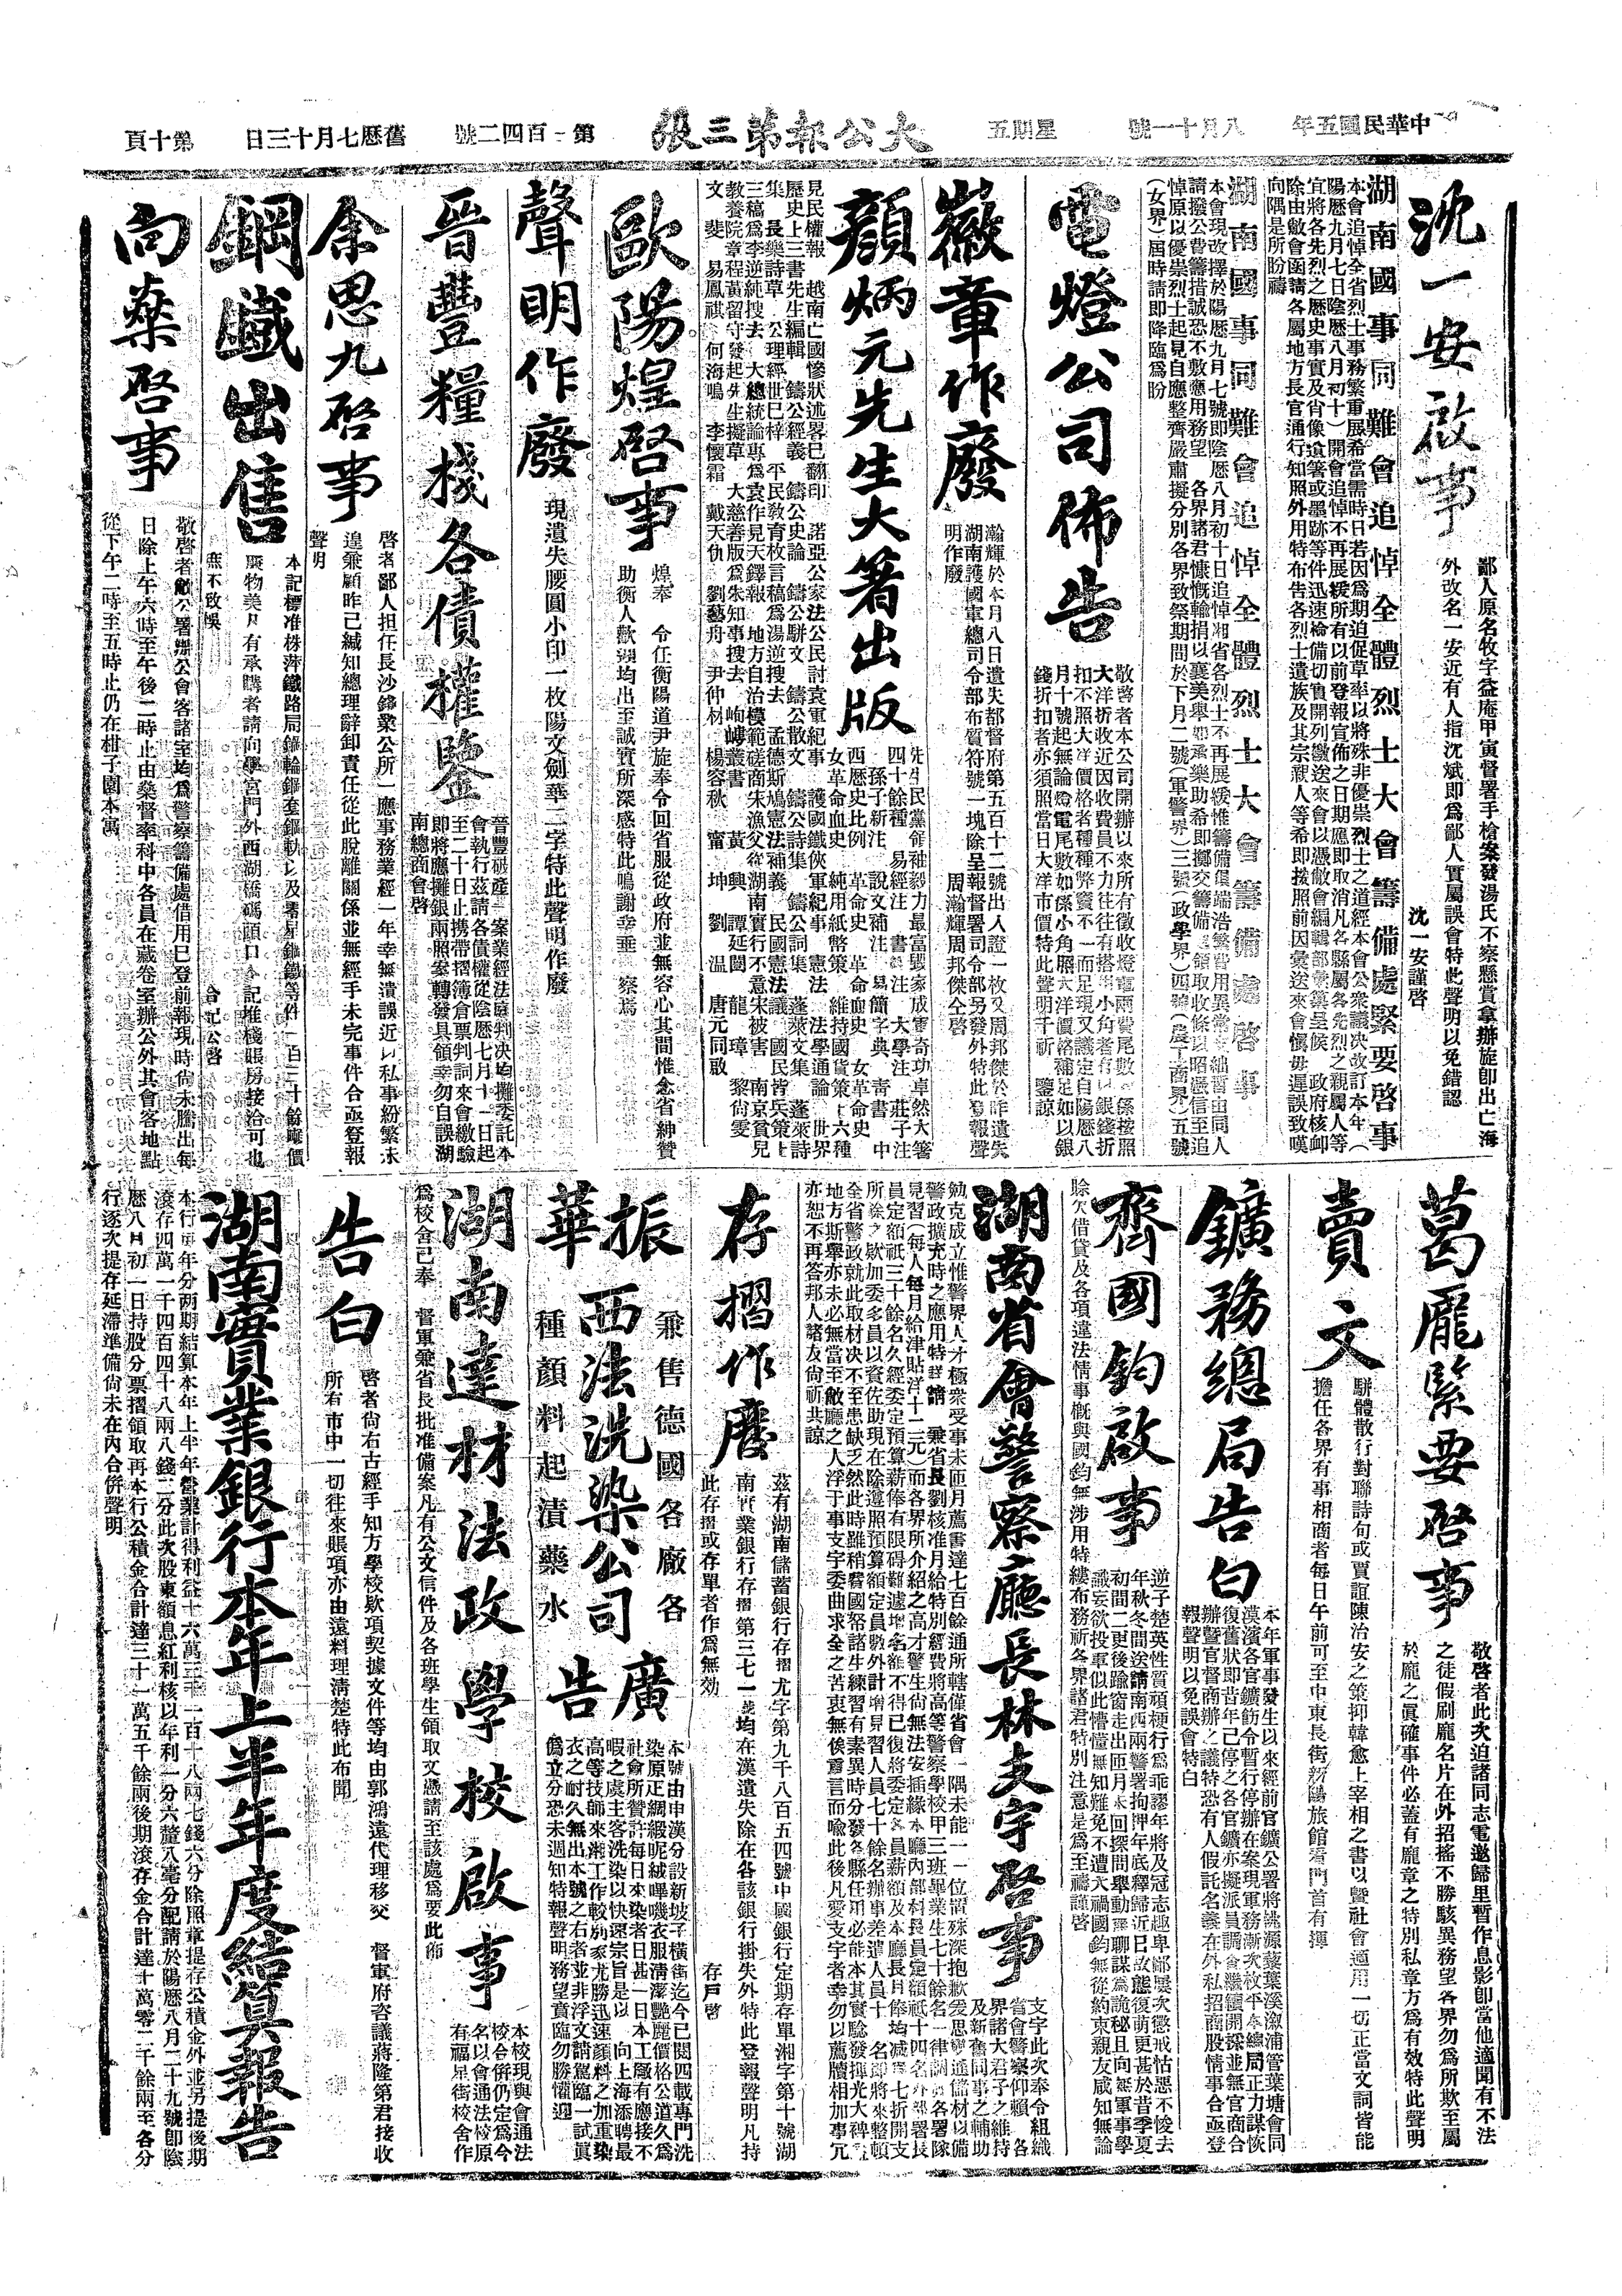 中華民國五年 八月十一號 星期五 大公報第三張 第一百四二號 舊歷七月十三日 第十頁
沈一安啟事
鄙人原名牧字益庵甲寅督署手槍案發湯氏不察懸賞拿辦旋即出亡海
外改名一安近有人指沈斌即爲鄙人實屬誤會特此聲明以免錯認
沈一安謹啓
湖南國事同難會追悼全體烈士大會籌備處緊要啓事
本會追悼全省烈士事務繁重展希當需時日若因爲期迫促草率以將殊非優崇烈士之道經本會公衆議決改訂本年(
陽歷九月七日陰歷八月初十)開會追悼不再展緩所有以前登報宣佈之日期應即取消凡各縣屬各先烈之親屬人等
宜將各先烈之歷史事實及肖像遺箸或墨跡等件迅速檢備切實開列繳送來會以憑敝會編輯部彙集呈候 政府核卹
除由敝會函請各屬地方長官通行知照外用特布告各烈士遺族及其宗親人等希即按照前因彙送來會愼毋遲誤致嘆
向隅是所盼禱
湖南國事同難會追悼全體烈士大會籌備處啓事
本會現改擇於陽歷九月七號即陰歷八月初十日追悼湘省各烈士不再展緩惟籌備
請撥公費籌措誠恐不敷應用務望 各界諸君慷慨輸捐以襄美舉如承樂助希即擲交籌備
悼原以優崇烈士起見自應整齊嚴肅擬分別各界致祭期間於下月二號(軍警界)三號(政學界)四號(農工商界)五號
(女界)屆時請即降臨爲盼
電燈公司佈告
敬啓者本公司開辦以來所有徵收燈
大洋折收近因收費員不力往往有搭
扣不照大洋價格者種種弊竇不一而足現又議定自陽歷八
月十號起無論燈電尾數如係小角照大洋價格補足如以銀
錢折扣者亦須照當日大洋市價特此聲明千祈 鑒諒
徽章作廢
瀚輝於本月八日遺失都督府第五百十二號出人證一枚又周邦傑於昨遺失
湖南護國軍總司令部布質符號一塊除呈報督署司令部另發外特此登報聲
明作廢 周瀚輝周邦傑仝啓
顏炳元先生大著出版
先生民黨領袖毅力最富毀家成
四十餘種 易經注 書經注 大學注 莊子注
孫子新注 說文補注 易簡字典 靑書 中
西歷史比例 革命史 革命血史 女革命史
女革命血史 純用紙幣策 維持國貨策 十六種
見民權報 越南亡國慘狀述畧已翻印 諾亞公家法公民討袁軍紀事 護國鐵俠軍紀事 憲法 法學通論 世界
歷史上三書先生編輯 鑄公經義 鑄公史論 鑄公駢文 鑄公散文 鑄公詩集 鑄公詞集 蓬萊文集 蓬萊詩
集 長樂詩草 公理經世已梓 平民教育枚言稿爲湯逆搜去 孟德斯鳩憲法補義 民國憲法議 國民皆兵策
三稿爲李逆純搜去 大總統論專爲袁作見天鐸報 地方自治模範磋商朱漁父從湖南實行不意宋被害 南京貧兒
教養院章程黃留守發起先生擬草 大慈善版爲朱知事搜去 岣嶁叢書 黃 興 譚延闓 龍 璋 黎尙雯
文 斐 易鳳祺 何海鳴 李懷霜 戴天仇 劉藝舟 尹仲材 楊容秋 甯 坤 劉 温 唐元同啟
歐陽煌啓事
煌奉 令任衡陽道尹旋奉令回省服從政府並無容心其間惟念省紳贊
助衡人歡迎均出至誠實所深感特此鳴謝幸垂 察焉
聲明作廢
現遺失腰圓小印一枚陽文劍華二字特此聲明作廢
晉豐糧棧各債權鑒
晉豐破產一案業經法庭判決均攤委託本
會執行茲請各債權從陰歷七月十一日起
至二十日止携帶摺簿倉票判詞來會繳驗
即將應攤銀兩照案轉發具領幸勿自誤湖
南總商會啓
余思九啓事
啓者鄙人担任長沙鋒業公所一應事務業經一年幸無潰誤近以私事紛繁未
遑兼顧昨已緘知總理辭卸責任從此脫離關係並無經手未完事件合亟登報
聲明
鋼鐵出售
本記標准株萍鐵路局
廉物美凡有承購者請向學宮門外西湖橋碼頭口合記堆棧賬房接洽可也
無不致悞 合記公啓
向燊啓事
敬啓者敝公署辦公會客諸室均爲警察籌備處借用已登前報現時尙未騰出每
日除上午六時至午後二時止由燊督率科中各員在藏卷室辦公外其會客地點
從下午二時至五時止仍在柑子園本寓
葛龐緊要啓事
敬啓者此次迫諸同志電邀歸里暫作息影卽當他適聞有不法
之徒假刷龐名片在外招搖不勝駭異務望各界勿爲所欺至屬
於龐之眞確事件必蓋有龐章之特別私章方爲有效特此聲明
賣文
駢體散行對聯詩句或賈誼陳治安之策抑韓愈上宰相之書以曁社會適用一切正當文詞皆能
擔任各界有事相商者每日午前可至中東長街新陽旅館看門首有揮
鑛務總局告白
本年軍事發生以來經前官鑛公署將桃源蓼葉溪溆浦管葉塘會同
漠濱各官鑛飭令暫行停辦在案現軍務漸次枚平本總局正力謀恢
復舊狀即昔年已停之各官鑛亦擬派員調查繼續開採並無官商合
辦曁官督商辦之議特恐有人假託名義在外私招商股情事合亟登
報聲明以免誤會特白
齊國鈞啟事
逆子楚英性質頑梗行爲乖謬年將及冠志趣卑鄙屢次懲戒怙惡不悛去
年秋冬間送請南西兩警署拘押年底釋歸近日故態復萌更甚於昔季夏
初間二更後踰窗走出匝月未回探問舉動
識妄欲投軍似此懵懂無知難免不遭大禍國鈞無從約束親友咸知無論
賒欠借貸及各項違法情事槪與國鈞無涉用特縷布務祈各界諸君特別注意是爲至禱謹啓
湖南省會警察廳長林支宇啓事
支宇此次奉令組織
省會警察仰賴 各
界諸大君子之維持
及新舊同事之輔助
勉克成立惟警界人才極衆受事未匝月薦書達七百餘通所轄僅省會一隅未能一一位置殊深抱歉
警政擴充時之應用特詳請 兼省長劉核准月給特別經費將高等警察學校甲三班畢業生七十餘名一律調
見習(每人每月給津貼洋十二元)而各界所介紹之高才警生尙無法安插緣本廳內部科長員定額祇十四名外部署長
員定額祇三十餘名久經委定預算薪俸有限碍難遽增名額不得已復將委定各員薪額及本廳長月俸均减爲七折開支
所餘之欵加委多員以資佐助現在除遵照預算額定員數外計增見習人員七十餘名辦事差遣人員十一名即將來整頓
全省警政就此取材决不至患缺乏然此時雖稍費國帑諸生練習有素異時分發各縣任用必能本其實騐發揮光大裨益
地方斯舉亦未必無當至敝廳之人浮于事支宇委曲求全之苦衷無俟賣言而喩此後凡愛支宇者幸勿以薦牘相加事冗
亦恕不再答邦人諸友尙祈共諒
存摺作廢
茲有湖南儲蓄銀行存摺尤字第九千八百五四號中國銀行定期存單湘字第十號湖
南實業銀行存摺第三七一號均在漢遺失除在各該銀行掛失外特此登報聲明凡持
此存摺或存單者作爲無効 存戶啓
振華
兼售德國各廠各
西法洗染公司
種顏料起漬藥水
廣告
本號由申漢分設新坡子橫街迄今已閱四載專門洗
染原正綢緞呢絨嗶嘰衣服淸潔艷麗價格公道久爲
社會所贊許每日來染者日甚一日本工廠有應接不
暇之虞主客洗染以快速宗旨是以 向上海添聘最
高等技師來湘工作較別家尤勝迅速顏料之加重染
衣之耐久無出本號之右者並非浮文語駕臨一試眞
僞立分恐未週知特報聲明務望賁臨勿勝懽迎
湖南達材法政學校啟事
本校現與會通法
校合併仍定爲今
名以會通法校原
有福星街校舍作
爲校舍已奉 督軍兼省長批准備案凡有公文信件及各班學生領取文憑請至該處爲要此佈
告白
啓者尙右古經手知方學校欵項契據文件等均由郭鴻遠代理移交 督軍府咨議蔣隆第君接收
所有市中一切往來賬項亦由遠料理清楚特此布聞
湖南實業銀行本年上半年度結算報告
本行每年分兩期結算本年上半年營業計得利益十六萬三千一百十八兩七錢六分除照章提存公積金外並另提後期
滾存四萬一千四百四十八兩八錢二分此次股東額息紅利核以年利一分六釐八毫分配請於陽歷八月二十九號卽陰
歷八月初一日持股分票摺領取再本行公積金合計達三十一萬五千餘兩後期滾存金合計達十萬零二千餘兩至各分
行逐次提存延滯準備尙未在內合併聲明